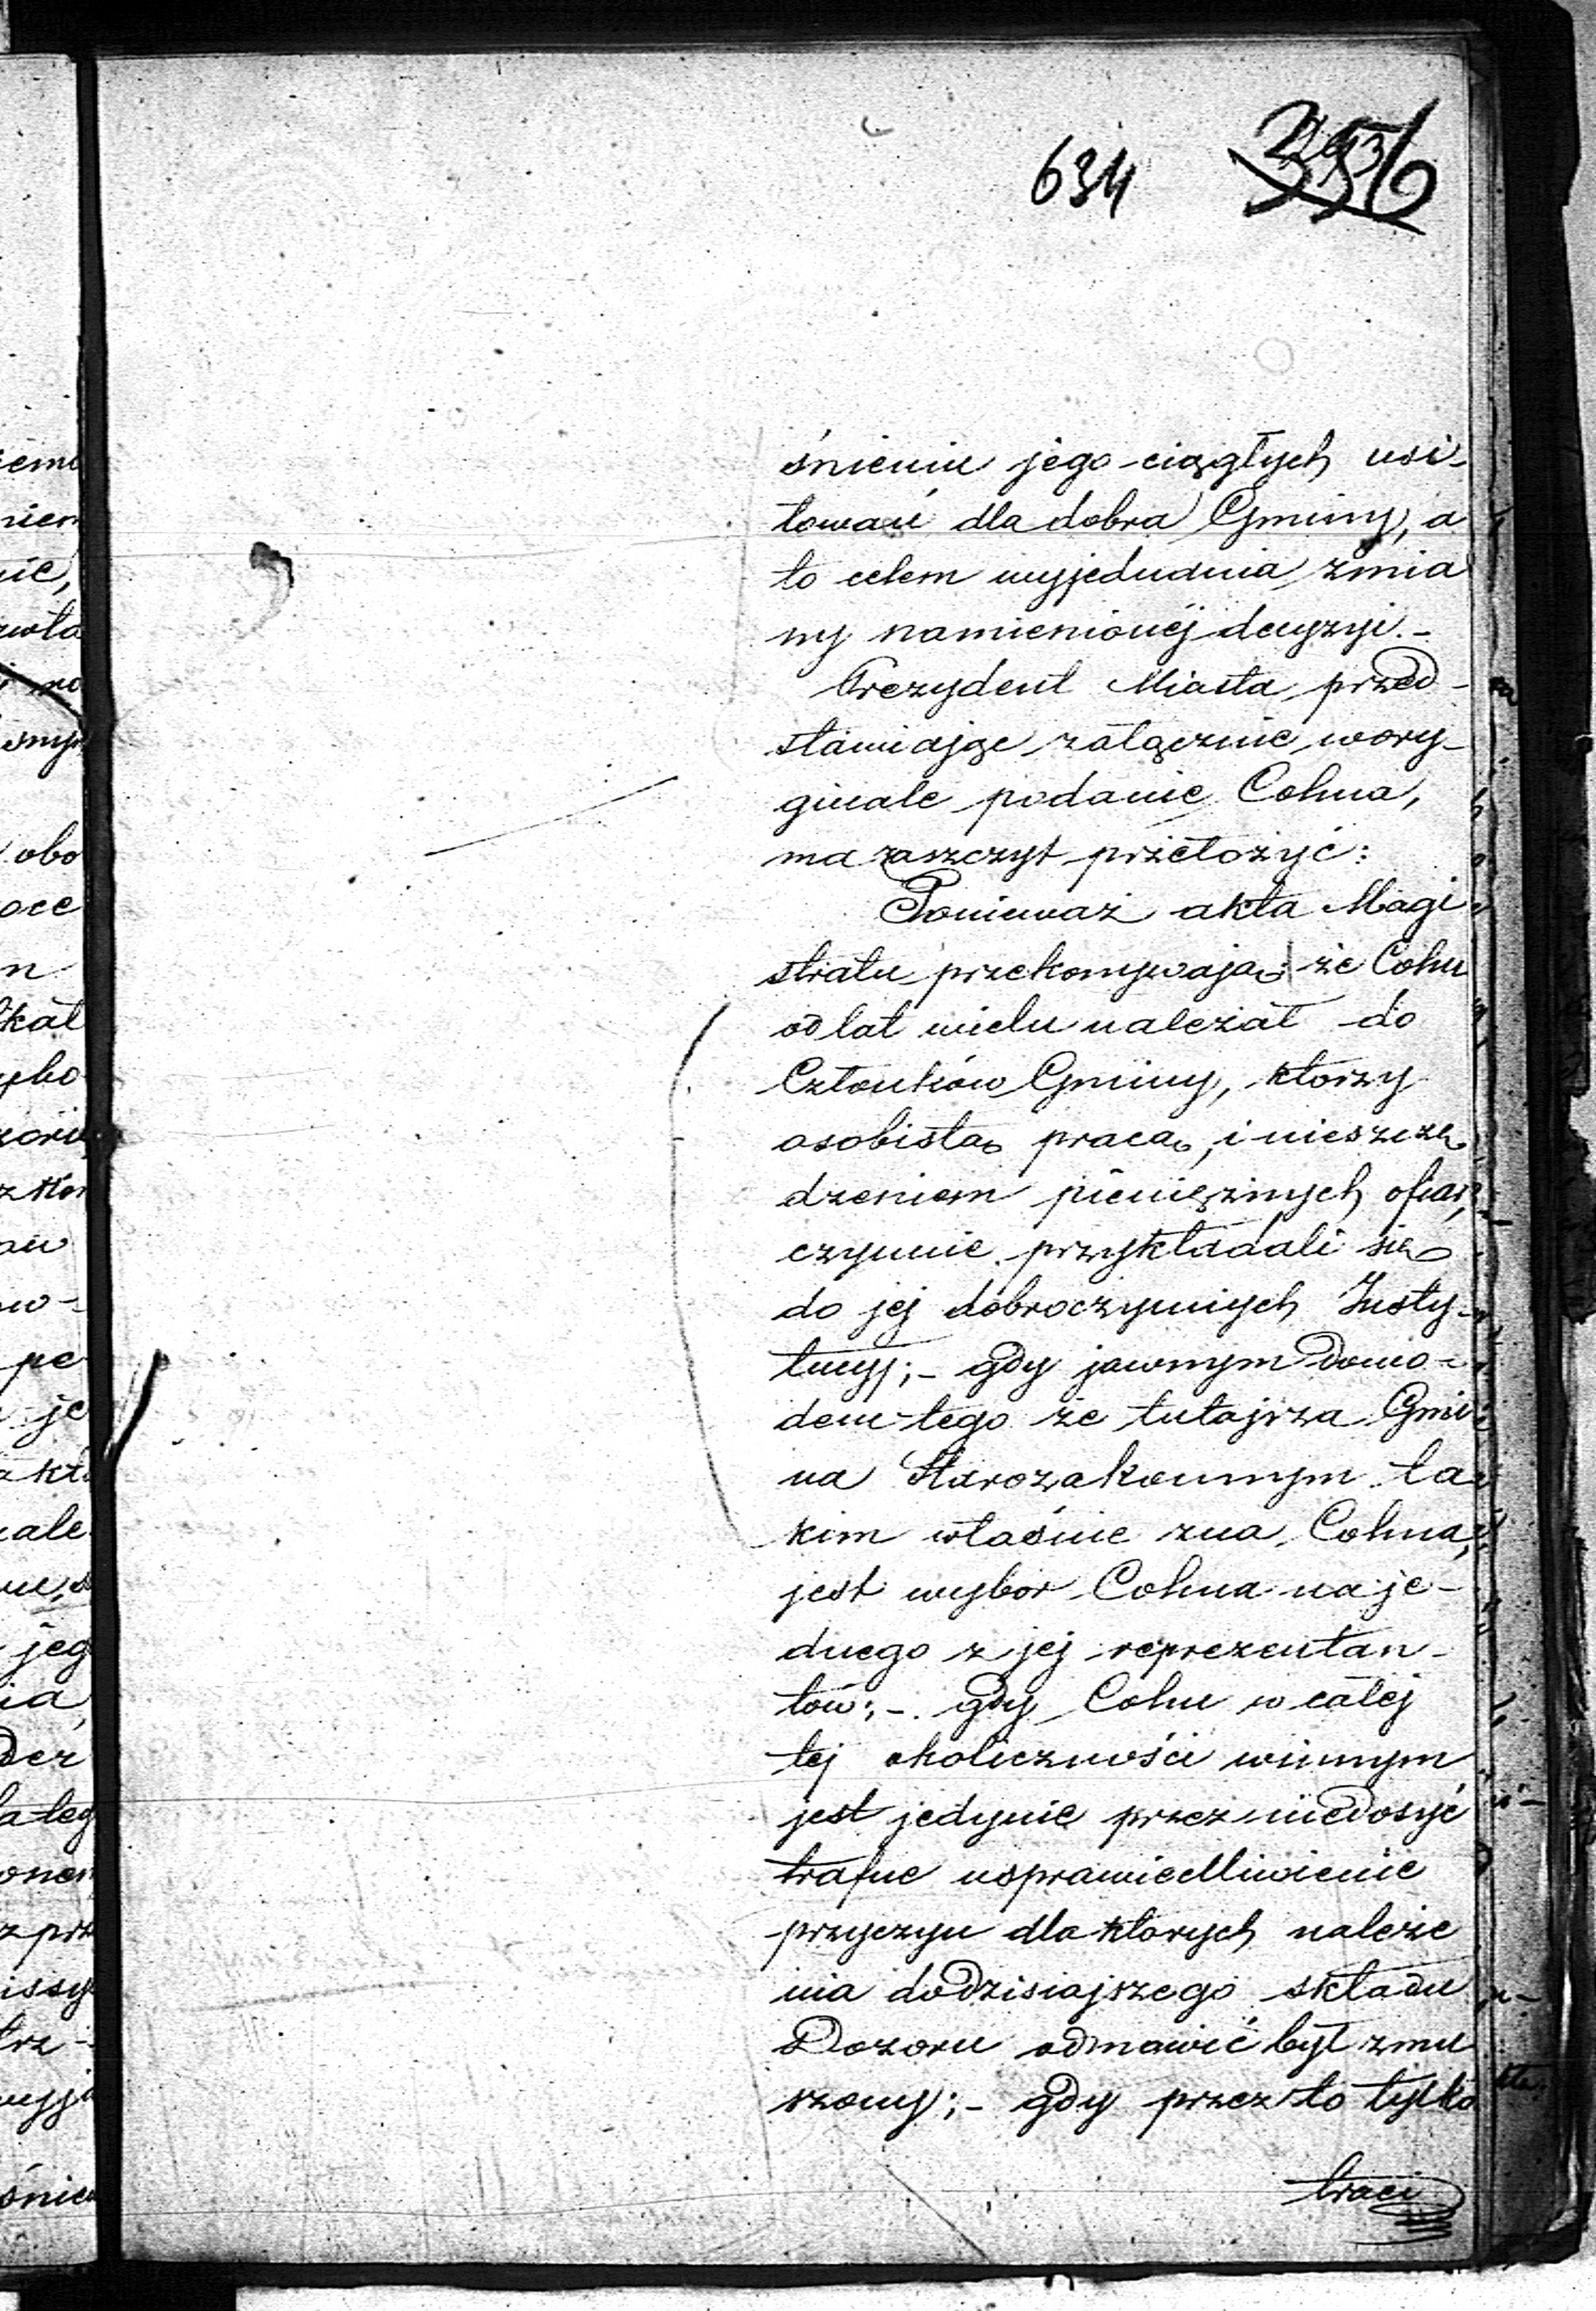 634
356
śnieniu jego ciągłych usi-
łowań dla dobra Gminy, a
to celem wyjednania zmia
ny namienionéj decyzyi.-
Prezydent Miasta przed-
stawiając załącznie wory-
ginale podanie Cohna,
ma zaszczyt przełożyć:
Ponieważ akta Magi
stratu przekonywają: że Cohn
od lat wielu należał do
Członków Gminy, którzy
osobistą pracą, i nieszczę
dzeniem pieniężnych ofiar,
czynnie przykładali się
do jej dobroczynnych Insty-
tucyj;- gdy jawnym dowo-
dem tego że tutejsza Gmi
na Starozakonnym ta
kim właśnie zna Cohna,
jest wybor Cohna na je-
dnego z jej reprezentan-
tów;-. gdy Cohn w całej
tej okoliczności winnym
jest jedynie przez niedosyć
trafne usprawiedliwienie
przyczyn dla ktorych należe
nia do dzisiajszego składu
Dozoru odmówić był zmu
szony;- gdy przez to tylko
traci